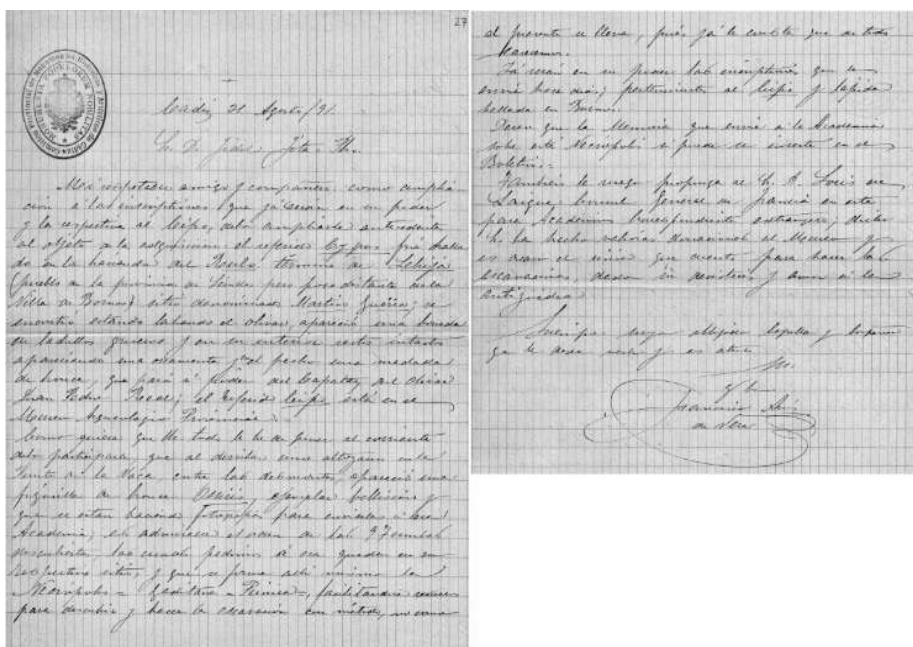 27
Cadiz 21 Agosto/91.
Sr. D. Fidel Fita. Th..
Mui respetable amigo y compañero: como amplia
cion á las inscripciones que ya serán en su poder
y la respectiva al Cipo, debo ampliarle antecedente
al objeto a la adquisicion: el referido Cipo fué halla
do en la hacienda del Rosalo, termino de Lebrija
(pueblo de la provincia de Sevilla pero poco distante de la
Villa de Bornos) sitio denominado Martin Guerra; se
encontró estando labrando el olivar, apareció una boveda
de ladrillos gruesos y en su interior restos intactos
apareciendo una osamenta y en el pecho una medalla
de bronce, que pará á poder del Capataz del olivar
Juan Pedro; el referido Cipo está en el
Museo Arqueologico Provincial.
Como quiera que de todo le he de poner al corriente
debo participarle, que al derribo una altozano en la
Punta de la Vaca, entre los desmontes, apareció una
figurilla de bronce Osiris, ejemplar bellisimo y
que se estan haciendo fotografias para enviarlas á esa
Academia; en
descubiertas, las cuales pedimos á esa queden en su
respectivo sitio, y que se forme alli mismo la
"Necrópolis - Gaditana - Fenicia", facilitandose
para descubrir y hacer la escavacion con metodo, no como
al presente se lleva, pués yá le consta que de todo
carecemos.
Yá serán en su poder las inscripciones que le
envié hace dias; pertenecientes al Cipo y lápida
hallada en Bornos.
Deseo que la Memoria que envié á la Academia
sobre esta Necropoli si puede se inserte en el
Boletin.
Tambien le ruego proponga al Sr. D. Louis de
Laigue, Consul General de Francia en esta
para Academico Correspondiente extranjero; dicho
Sr. ha hecho valiosas donaciones al Museo y
es el unico que cuento para hacer las
escavaciones, decidido y amor á la
antigüedad.
Siempre suyo afectisimo Capellan y
que le desea y es atento
Francisco Asis
de Vera